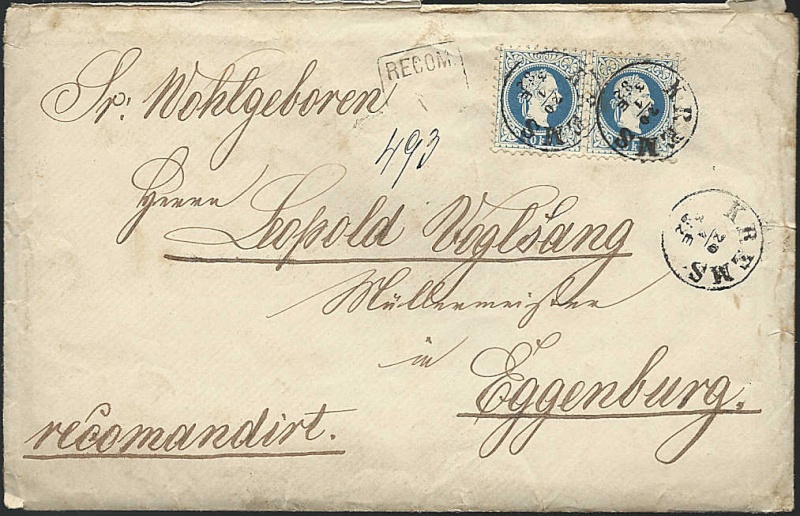 RECOM.
Sr. Wohlgeboren
493
Herrn
Leopold Voglsang
Müllermeister
in
Eggenburg.
recomandirt.
KREMS
KREMS
KREMS